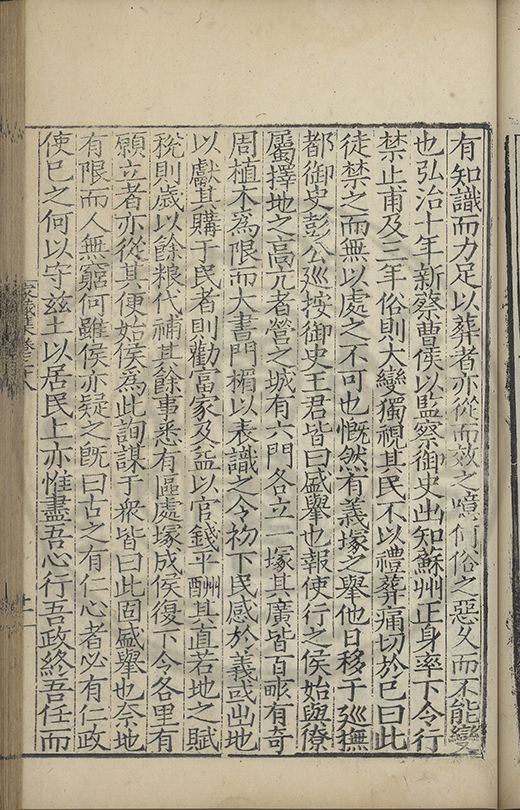 有知識而力足以葬者亦從而效之噫何俗之惡久而不能變
也弘治十年新蔡曹侯以監察御史出知蘇州正身率下令行
禁止甫及三年俗則大變獨視其民不以禮葬痛切於已曰此
徒禁之而無以處之不可也慨然有義塚之舉他日移于巡撫
都御史彭公巡按御史王君皆曰盛舉也報使行之侯始與僚
屬擇地之高亢者營之城有六門各立一塚其廣皆百畝有奇
周植木爲限而大書門楣以表識之令初下民感於義或出地
以獻其購于民者則勸富家及益以官錢平酬其直若地之賦
稅則歲以餘粮代補其餘事悉有區處塚成侯復下令各里有
願立者亦從其便始侯爲此詢謀于衆皆曰此固盛舉也奈地
有限而人無窮何雖侯亦疑之旣曰古之有仁心者必有仁政
使已之何以守玆土以居民上亦惟盡吾心行吾政終吾任而